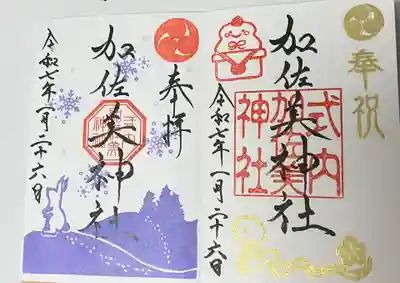 奉祝
加佐美神社
式内
加佐美
神社
令和七年一月二十六日
奉拝
加佐美神社
令和七年一月二十六日